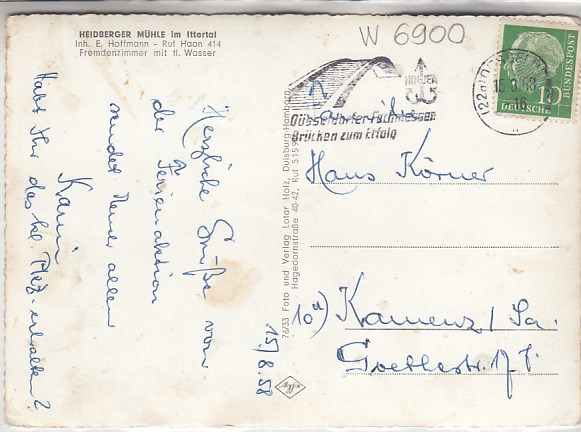 HEIDBERGER MÜHLE im Ittertal
Inh. E. Hoffmann - Ruf Haan 414
Fremdenzimmer mit fl. Wasser
W 6900
Herzliche Grüße von
der Ferienaktion
sendet Euch allen
Karin
Habt Ihr das kl. Pkt. erhalten?
15/8.58
76/33 Foto und Verlag Lotar Holz, Duisburg-Hamborn
Hagedornstraße 40-42, Ruf 5159
Düsseldorfer Fachmessen
Brücken zum Erfolg
DEUTSCHE
BUNDESPOST
Familie
Hans Körner
10a) Kamenz / Sa.
Goethestr. 17